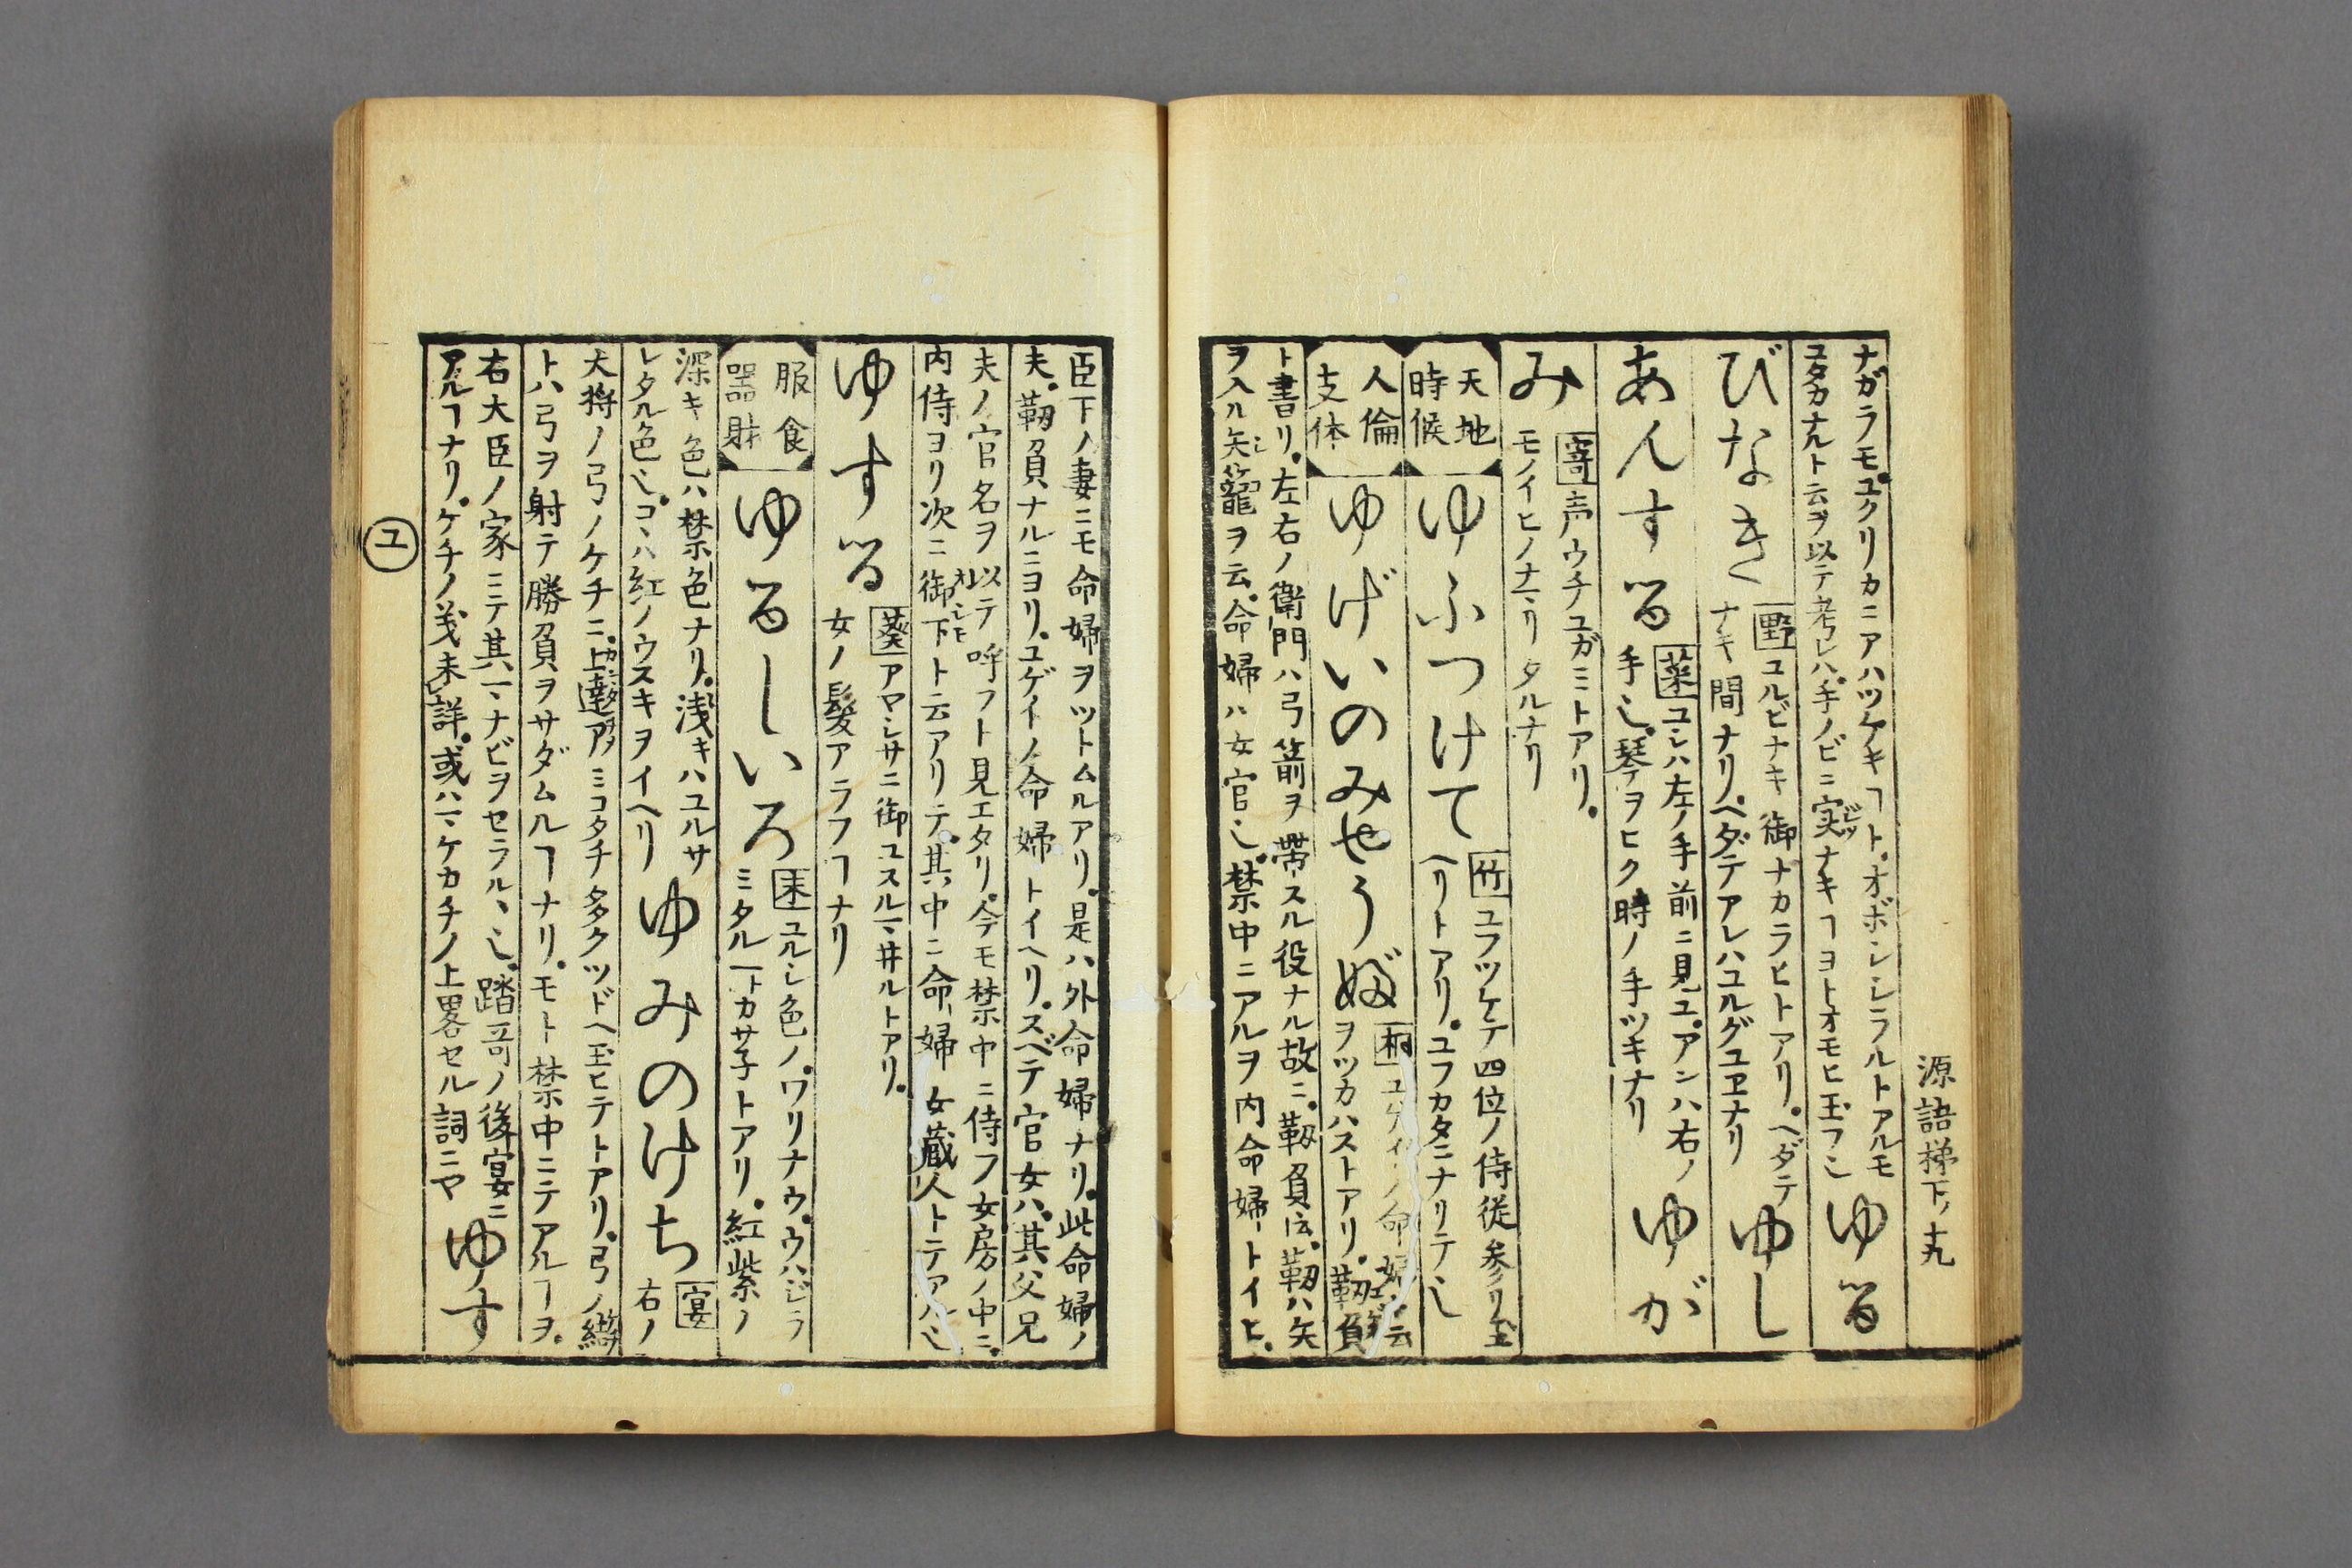 源語梯下ノ十九
ナガラモ。ユクリカニアハツケキヿト。オボシシラルトアルモ
ユタカナルト云ヲ以テ考レハ。手ノビニ実ナキヿヨトオモヒ玉フ乄
ゆる
びなき
野 ユルビナキ御ナカラヒトアリ。ヘダテ
ナキ間ナリ。ヘダテアレハユルグユヱナリ
ゆし
あんする
菜 ユシハ左ノ手前ニ見ユ。アンハ右ノ
手也。琴ヲヒク時ノ手ツキナリ
ゆが
み
寄 声ウチユガミトアリ。
モノイヒノナマリタルナリ
天地
時候
ゆふつけて
竹 ユフツケテ四位ノ侍従参リ玉
ヘリトアリ。ユフカタニナリテ也
人倫
支体
ゆげいのみやうぶ
桐 ユゲイノ命婦
ヲツカハストアリ。靱負
ト書リ。左右ノ衛門ハ弓箭ヲ帶スル役ナル故ニ。靱負ト云。靱ハ矢
ヲ入ル矢籠ヲ云。命婦ハ女官也。禁中ニアルヲ内命婦トイヒ。
臣下ノ妻ニモ命婦ヲツトムルアリ。是ハ外命婦ナリ。此命婦ノ
夫。靱負ナルニヨリ。ユゲイノ命婦トイヘリ。スベテ官女ハ。其父兄
夫ノ官名ヲ以テ呼フト見エタリ。今モ禁中ニ侍フ女房ノ中ニ。
内侍ヨリ次ニ御下ト云アリテ。其中ニ命婦 女蔵人トテアル也
ゆする
葵 アマシサニ御ユスルマヰルトアリ。
女ノ髪アラフヿナリ
服食
器財
ゆるしいろ
末 ユルシ色ノ。ワリナウ。ウハジラ
ミタル一トカサ子トアリ。紅紫ノ
深キ色ハ禁色ナリ。浅キハユルサ
レタル色也。コヽハ紅ノウスキヲイヘリ
ゆみのけち
宴 右ノ
大将ノ弓ノケチニ。上達アミコタチ多クツドヘ玉ヒテトアリ。弓ノ結
トハ弓ヲ射テ勝負ヲサダムルヿナリ。モト禁中ニテアルヿヲ。
右大臣ノ家ニテ其マナビヲセラルヽ也。踏哥ノ後宴ニ
アルヿナリ。ケチノ義未詳。或ハマケカチノ上畧セル詞ニヤ
ゆす
ユ